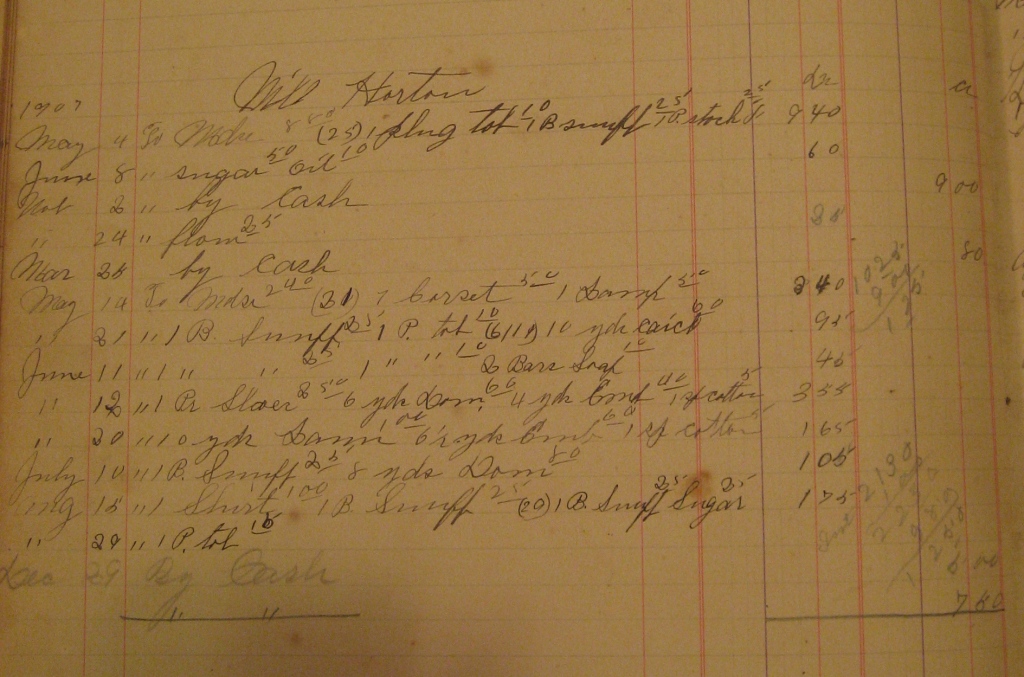 Will Horton
1907 Dr Cr
May 4 To Mdse 8 80 (25) 1 plug tob 10 1 B snuff 25 1 P. stock 25 9 40
June 8 " sugar 50 oil 10 60
Nov 2 " by Cash 9 00
" 24 " flour 25 25
Mar 25 by Cash 80
May 14 To Mdse 240 (21) 1 Corset 50 1 Lamp 50 340
" 21 " 1 B. Snuff 25 1 P. tob 10 (6/11) 10 yds calico 60 95
June 11 " 1 " " 25 1 " " 10 2 Bars Soap 10 45
" 12 " 1 Pr Shoes 250 6 yds Dom. 60 4 yds Emb 40 1 sp cotton 5 355
" 20 " 10 yds 100 6 yds Emb 60 1 sp cotton 5 165
July 10 " 1 B. Snuff 25 8 yds Dom 80 105
Aug 15 " 1 Shirt 100 1 B. Snuff 25 (20) 1 B. Snuff 25 Sugar 25 175
" 29 " 1 P. tob 10
Dec 29 By Cash 6 00
" " 780